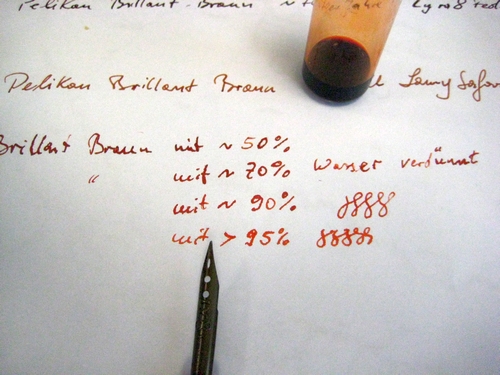 Pelikan Brillant-Braun
Pelikan Brillant Braun Lamy Safari
Brillant Braun mit ~ 50%
" mit ~ 70% Wasser verdünnt
mit ~ 90%
mit > 95%